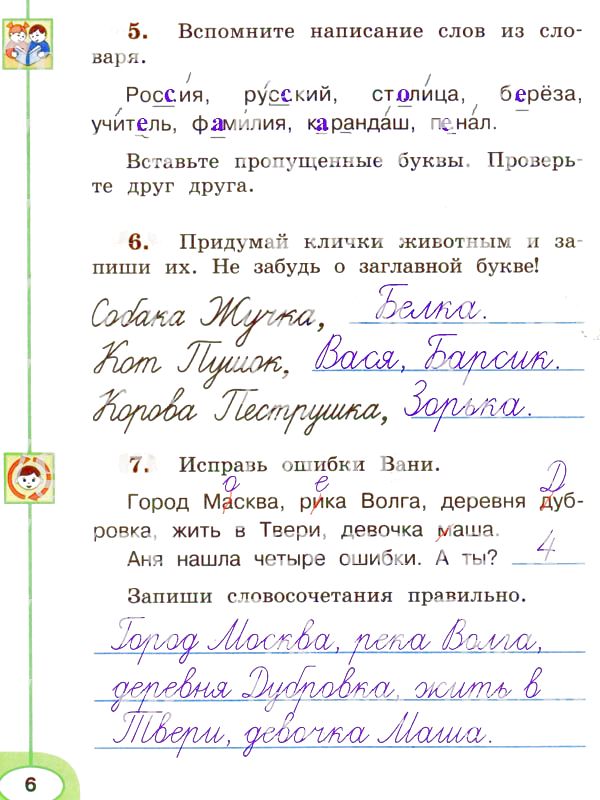 5. Вспомните написание слов из сло-
варя.
Россия, русский, столица, берёза,
учитель, фамилия, карандаш, пенал.
Вставьте пропущенные буквы. Проверь-
те друг друга.
6. Придумай клички животным и за-
пиши их. Не забудь о заглавной букве!
Собака Жучка, Белка.
Кот Пушок, Вася, Барсик.
Корова Пеструшка, Зорька.
7. Исправь ошибки Вани.
а е Д
Город Масква, рика Волга, деревня дуб-
ровка, жить в Твери, девочка маша.
Аня нашла четыре ошибки. А ты? 4
Запиши словосочетания правильно.
Город Москва, река Волга,
деревня Дубровка, жить в
Твери, девочка Маша.
6